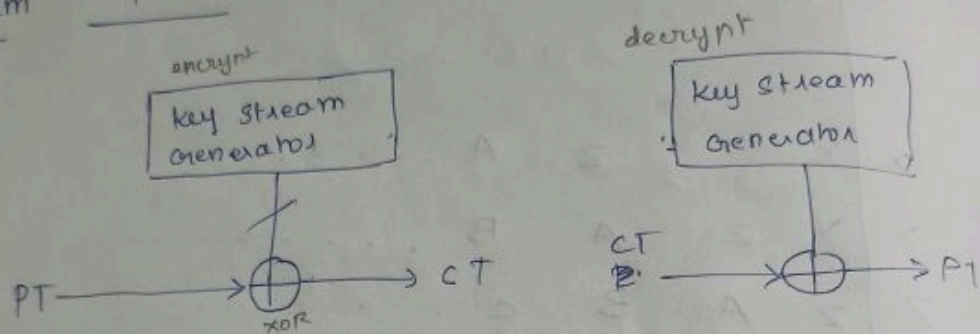 m
encrypt
key stream
Generator
PT
XOR
CT
decrypt
key stream
Generator
CT
PT